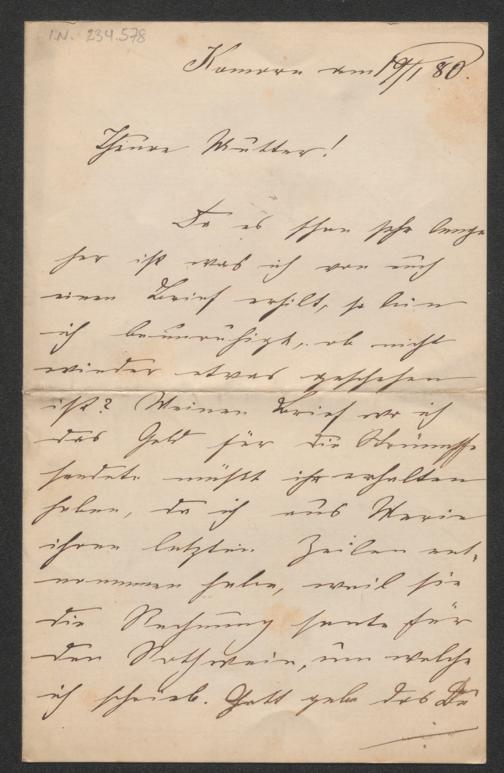 I.N. 234.578
Komorn am 19/I 80.
Theure Mutter!
Da es schon sehr lange
her ist was ich von euch
einen Brief erhilt, so bin
ich beunruhigt, ob nicht
wieder etwas geschehen
ist? Meinen Brief wo ich
das Geld für die Strümpffe
sendete müßt ihr erhalten
haben, da ich aus Marie
ihren letzten Zeilen ent-
nommen habe, weil sie
die Rechnung sante für
den Rothwein, um welche
ich schrieb. Gott gebe das Du